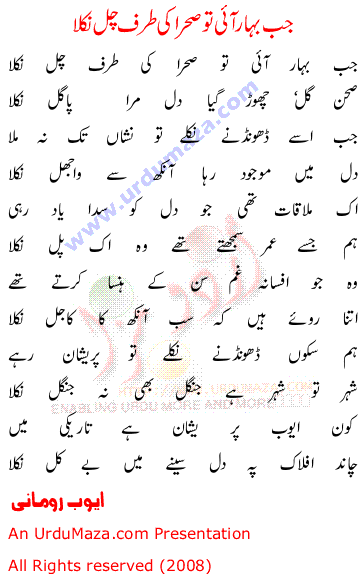 جب بہار آئی تو صحرا کی طرف چل نکلا
جب بہار آئی تو صحرا کی طرف چل نکلا
صحن گلؑ چھوڑ گیا دل مرا پاگل نکلا
جب اسے ڈھونڈنے نکلے تو نشاں تک نہ ملا
دل میں موجود رہا آنکھ سے واجھل نکلا
اک ملاقات تھی جو دل کو سدا یاد رہی
ہم جسے عمر سمجھتے تھے وہ اک پل نکلا
وہ جو افسانہ غم سن کے ہنسا کرتے تھے
اتنا روئے ہیں کہ سب آنکھ کا کاجل نکلا
ہم سکوں ڈھونڈنے نکلے تو پریشان رہے
شہر تو شہر ہے جنگل بھی نہ جنگل نکلا
کون ایوب پر یشان ہے تاریکی میں
چاند افلاک پہ دل سینے میں بے کل نکلا
ایوب رومانی
An UrduMaza.com Presentation
All Rights reserved (2008)
www.urdumaza.com
URDUMAZA.COM
ENABLING URDU MORE AND MORE